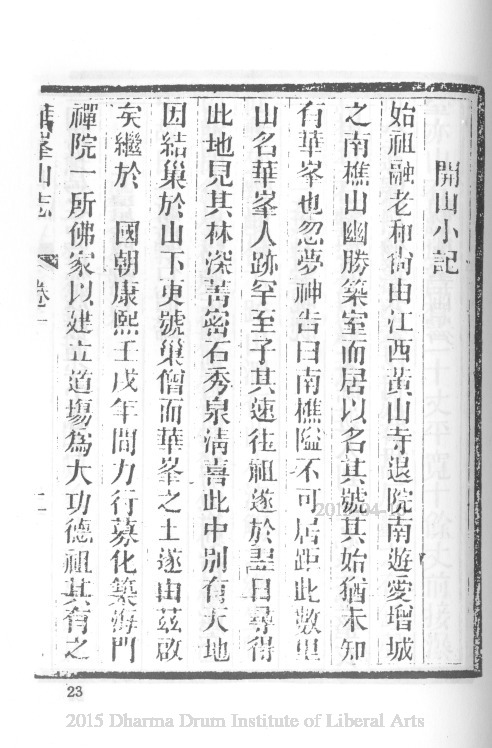 開山小記
始祖融老和尚由江西黃山寺退院南遊愛增城
之南樵山幽勝築室而居以名其號其始猶未知
有華峯也忽夢神告曰南樵隘不可居距此數里
山名華峯人跡罕至子其速徃祖遂於翌日尋得
此地見其林深菁密石秀泉清喜此中別有天地
因結巢於山下更號巢僧而華峯之土遂由茲啟
矣繼於 國朝康熙壬戌年間力行募化築海門
禪院一所佛家以建立道塲為大功德祖其有之
華峯山志 卷一 二
23
2015 Dharma Drum Institute of Liberal Arts